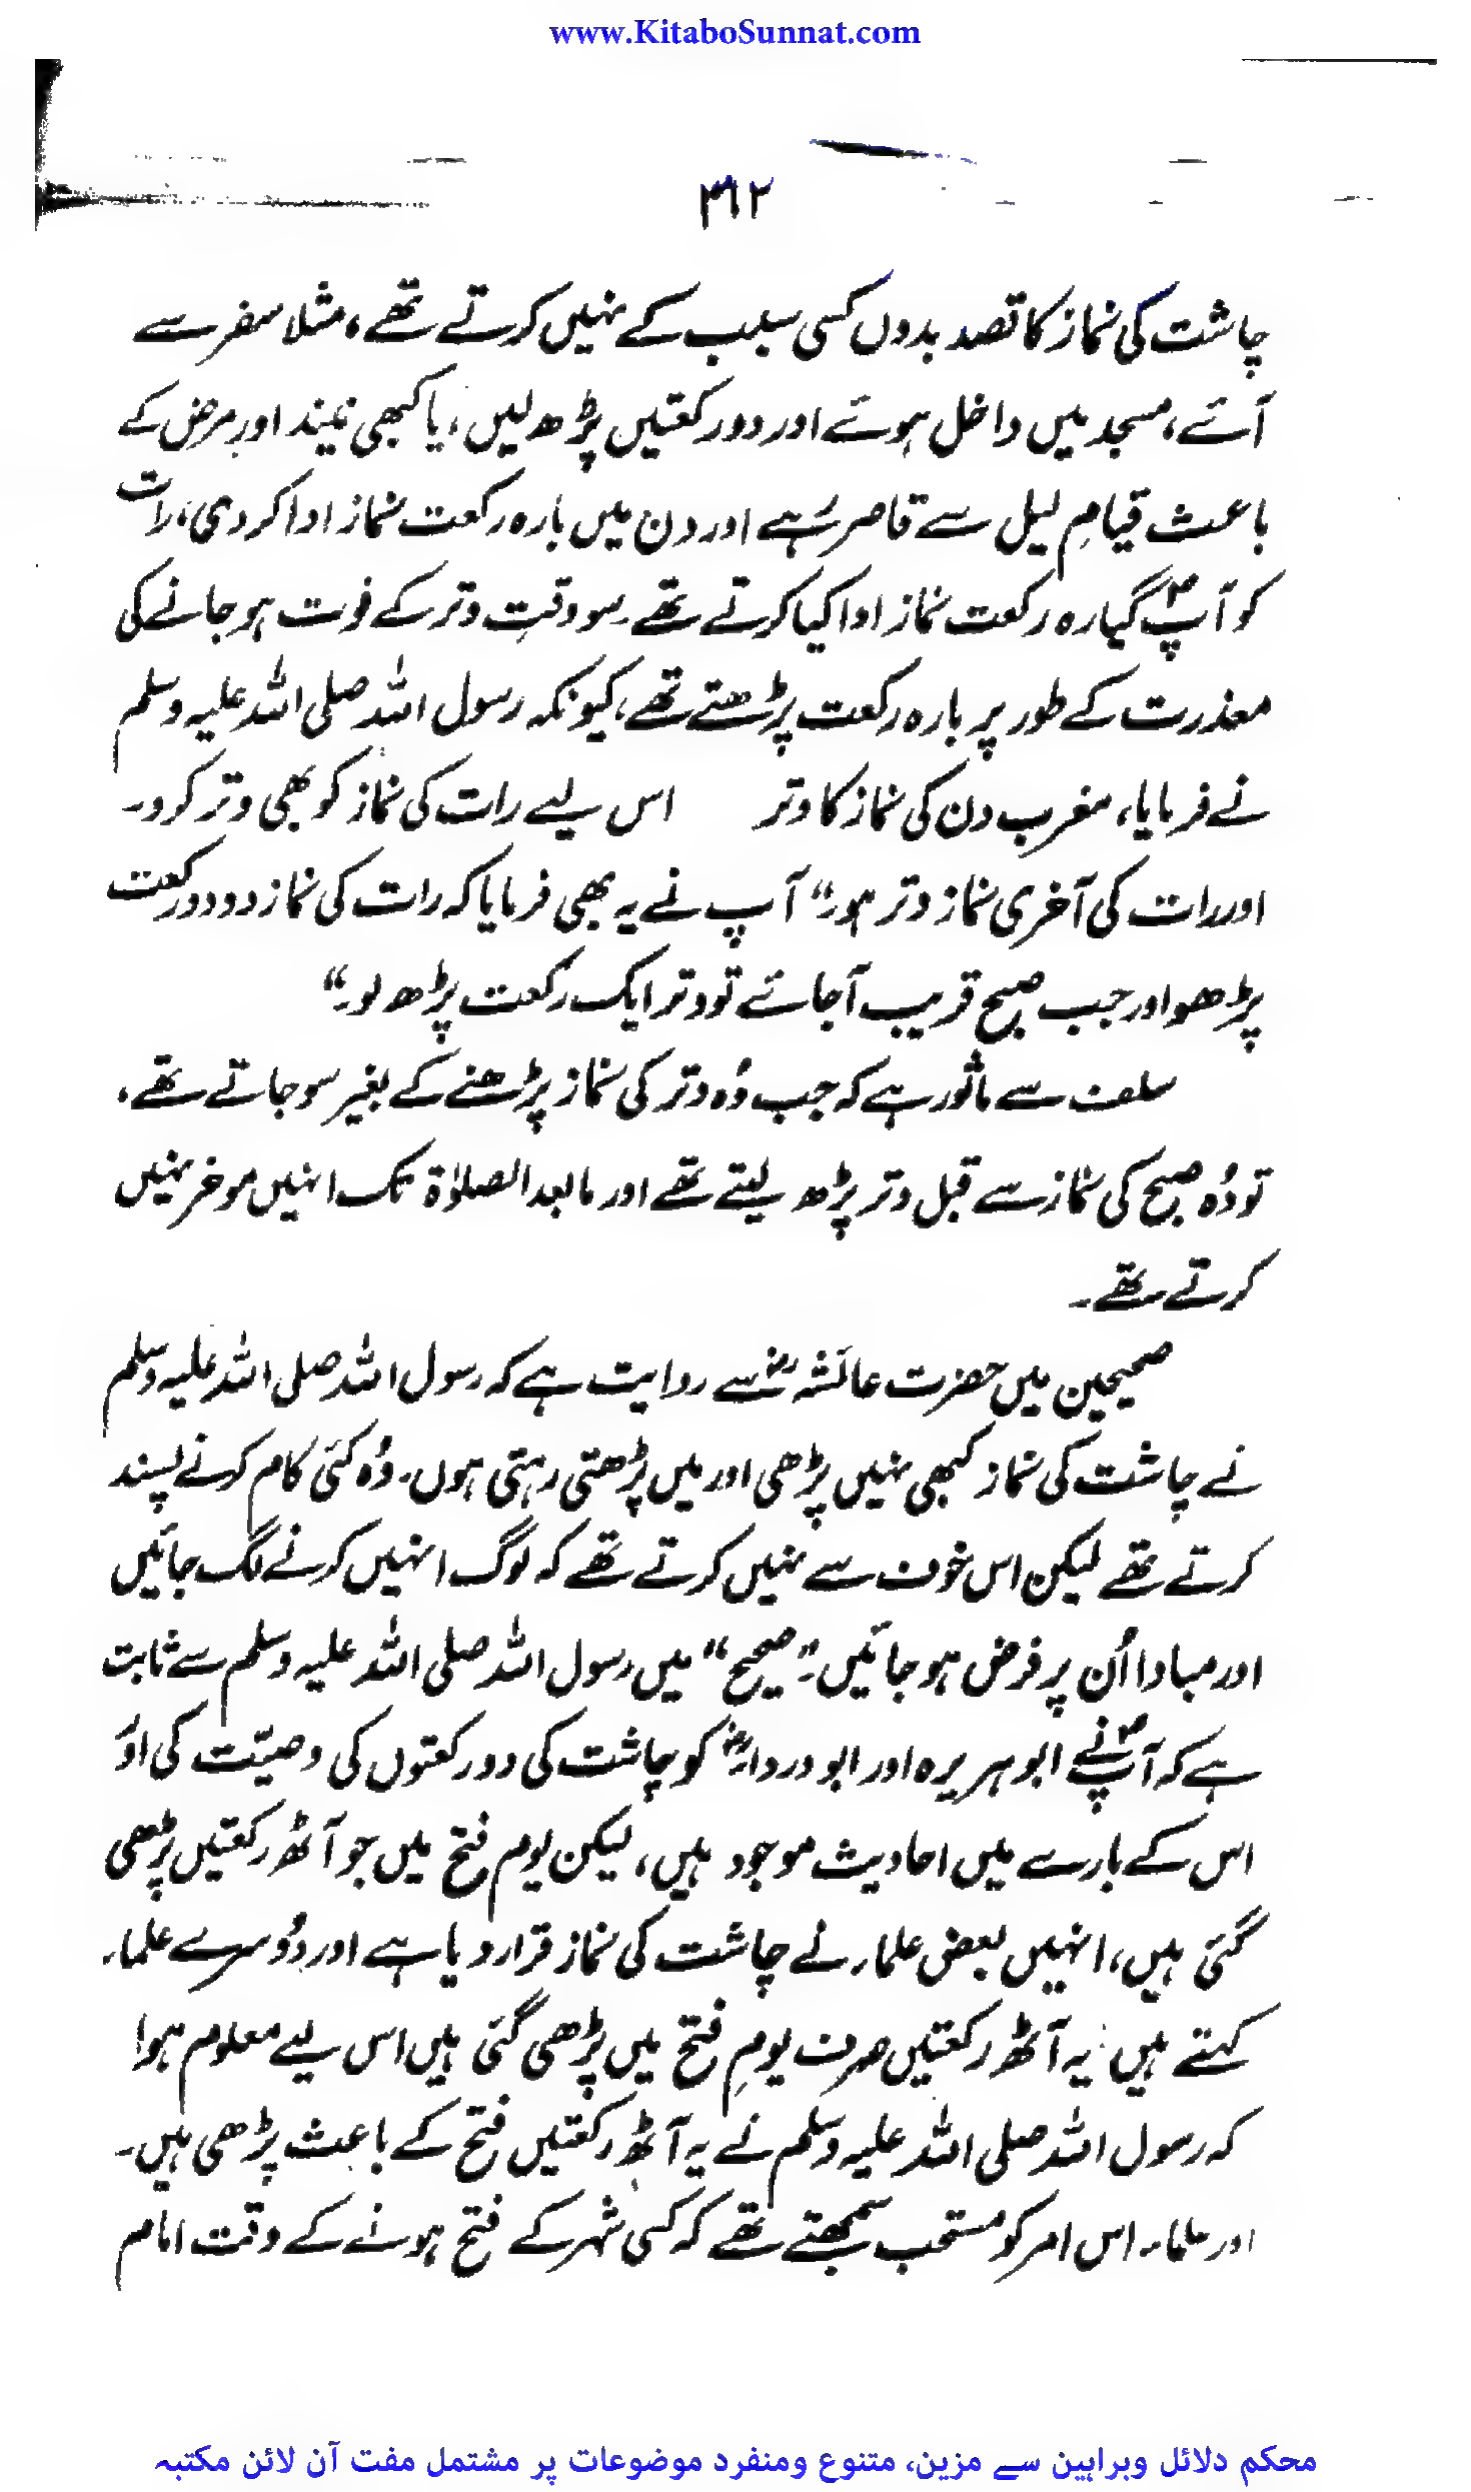 www.KitaboSunnat.com
۳۶۲
چاشت کی نماز کا قصد بدوں کسی سبب کے نہیں کرتے تھے، مثلا سفر سے
آئے، مسجد میں داخل ہوئے اور دو رکعتیں پڑھ لیں، یا کبھی نیند اور مرض کے
باعث قیامِ لیل سے قاصر رہے اور دن میں بارہ رکعت نماز ادا کر دی، رات
کو آپؐ گیارہ رکعت نماز ادا کیا کرتے تھے۔ سو وقتِ وتر کے فوت ہو جانے کی
معذرت کے طور پر بارہ رکعت پڑھتے تھے، کیونکہ رسول اللہ صلی اللہ علیہ وسلم
نے فرمایا، مغرب دن کی نماز کا وتر اس لیے رات کی نماز کو بھی وتر کرو۔
اور رات کی آخری نماز وتر ہو۔“ آپ نے یہ بھی فرمایا کہ رات کی نماز دو دو رکعت
پڑھو اور جب صبح قریب آجائے تو وتر ایک رکعت پڑھ لو۔“
سلف سے ماثور ہے کہ جب وُہ وتر کی نماز پڑھنے کے بغیر سو جاتے تھے،
تو وُہ صبح کی نماز سے قبل وتر پڑھ لیتے تھے اور مابعد الصلوٰۃ تک انہیں موخر نہیں
کرتے تھے۔
صحیحین میں حضرت عائشہؓ سے روایت ہے کہ رسول اللہ صلی اللہ علیہ وسلم
نے چاشت کی نماز کبھی نہیں پڑھی اور میں پڑھتی رہتی ہوں۔ وُہ کئی کام کرنے پسند
کرتے تھے لیکن اس خوف سے نہیں کرتے تھے کہ لوگ انہیں کرنے لگ جائیں
اور مبادا اُن پر فرض ہو جائیں۔ ”صحیح“ میں رسول اللہ صلی اللہ علیہ وسلم سے ثابت
ہے کہ آپؐ نے ابو ہریرہ اور ابو درداءؓ کو چاشت کی دو رکعتوں کی وصیّت کی اور
اس کے بارے میں احادیث موجود ہیں، لیکن یوم فتح میں جو آٹھ رکعتیں پڑھی
گئی ہیں، انہیں بعض علماء نے چاشت کی نماز قرار دیا ہے اور دُوسرے علماء
کہتے ہیں یہ آٹھ رکعتیں صرف یومِ فتح میں پڑھی گئی ہیں اس لیے معلوم ہوا
کہ رسول اللہ صلی اللہ علیہ وسلم نے یہ آٹھ رکعتیں فتح کے باعث پڑھی ہیں۔
اور علماء اس امر کو مستحب سمجھتے تھے کہ کسی شہر کے فتح ہونے کے وقت امام
محکم دلائل وبراہین سے مزین، متنوع ومنفرد موضوعات پر مشتمل مفت آن لائن مکتبہ